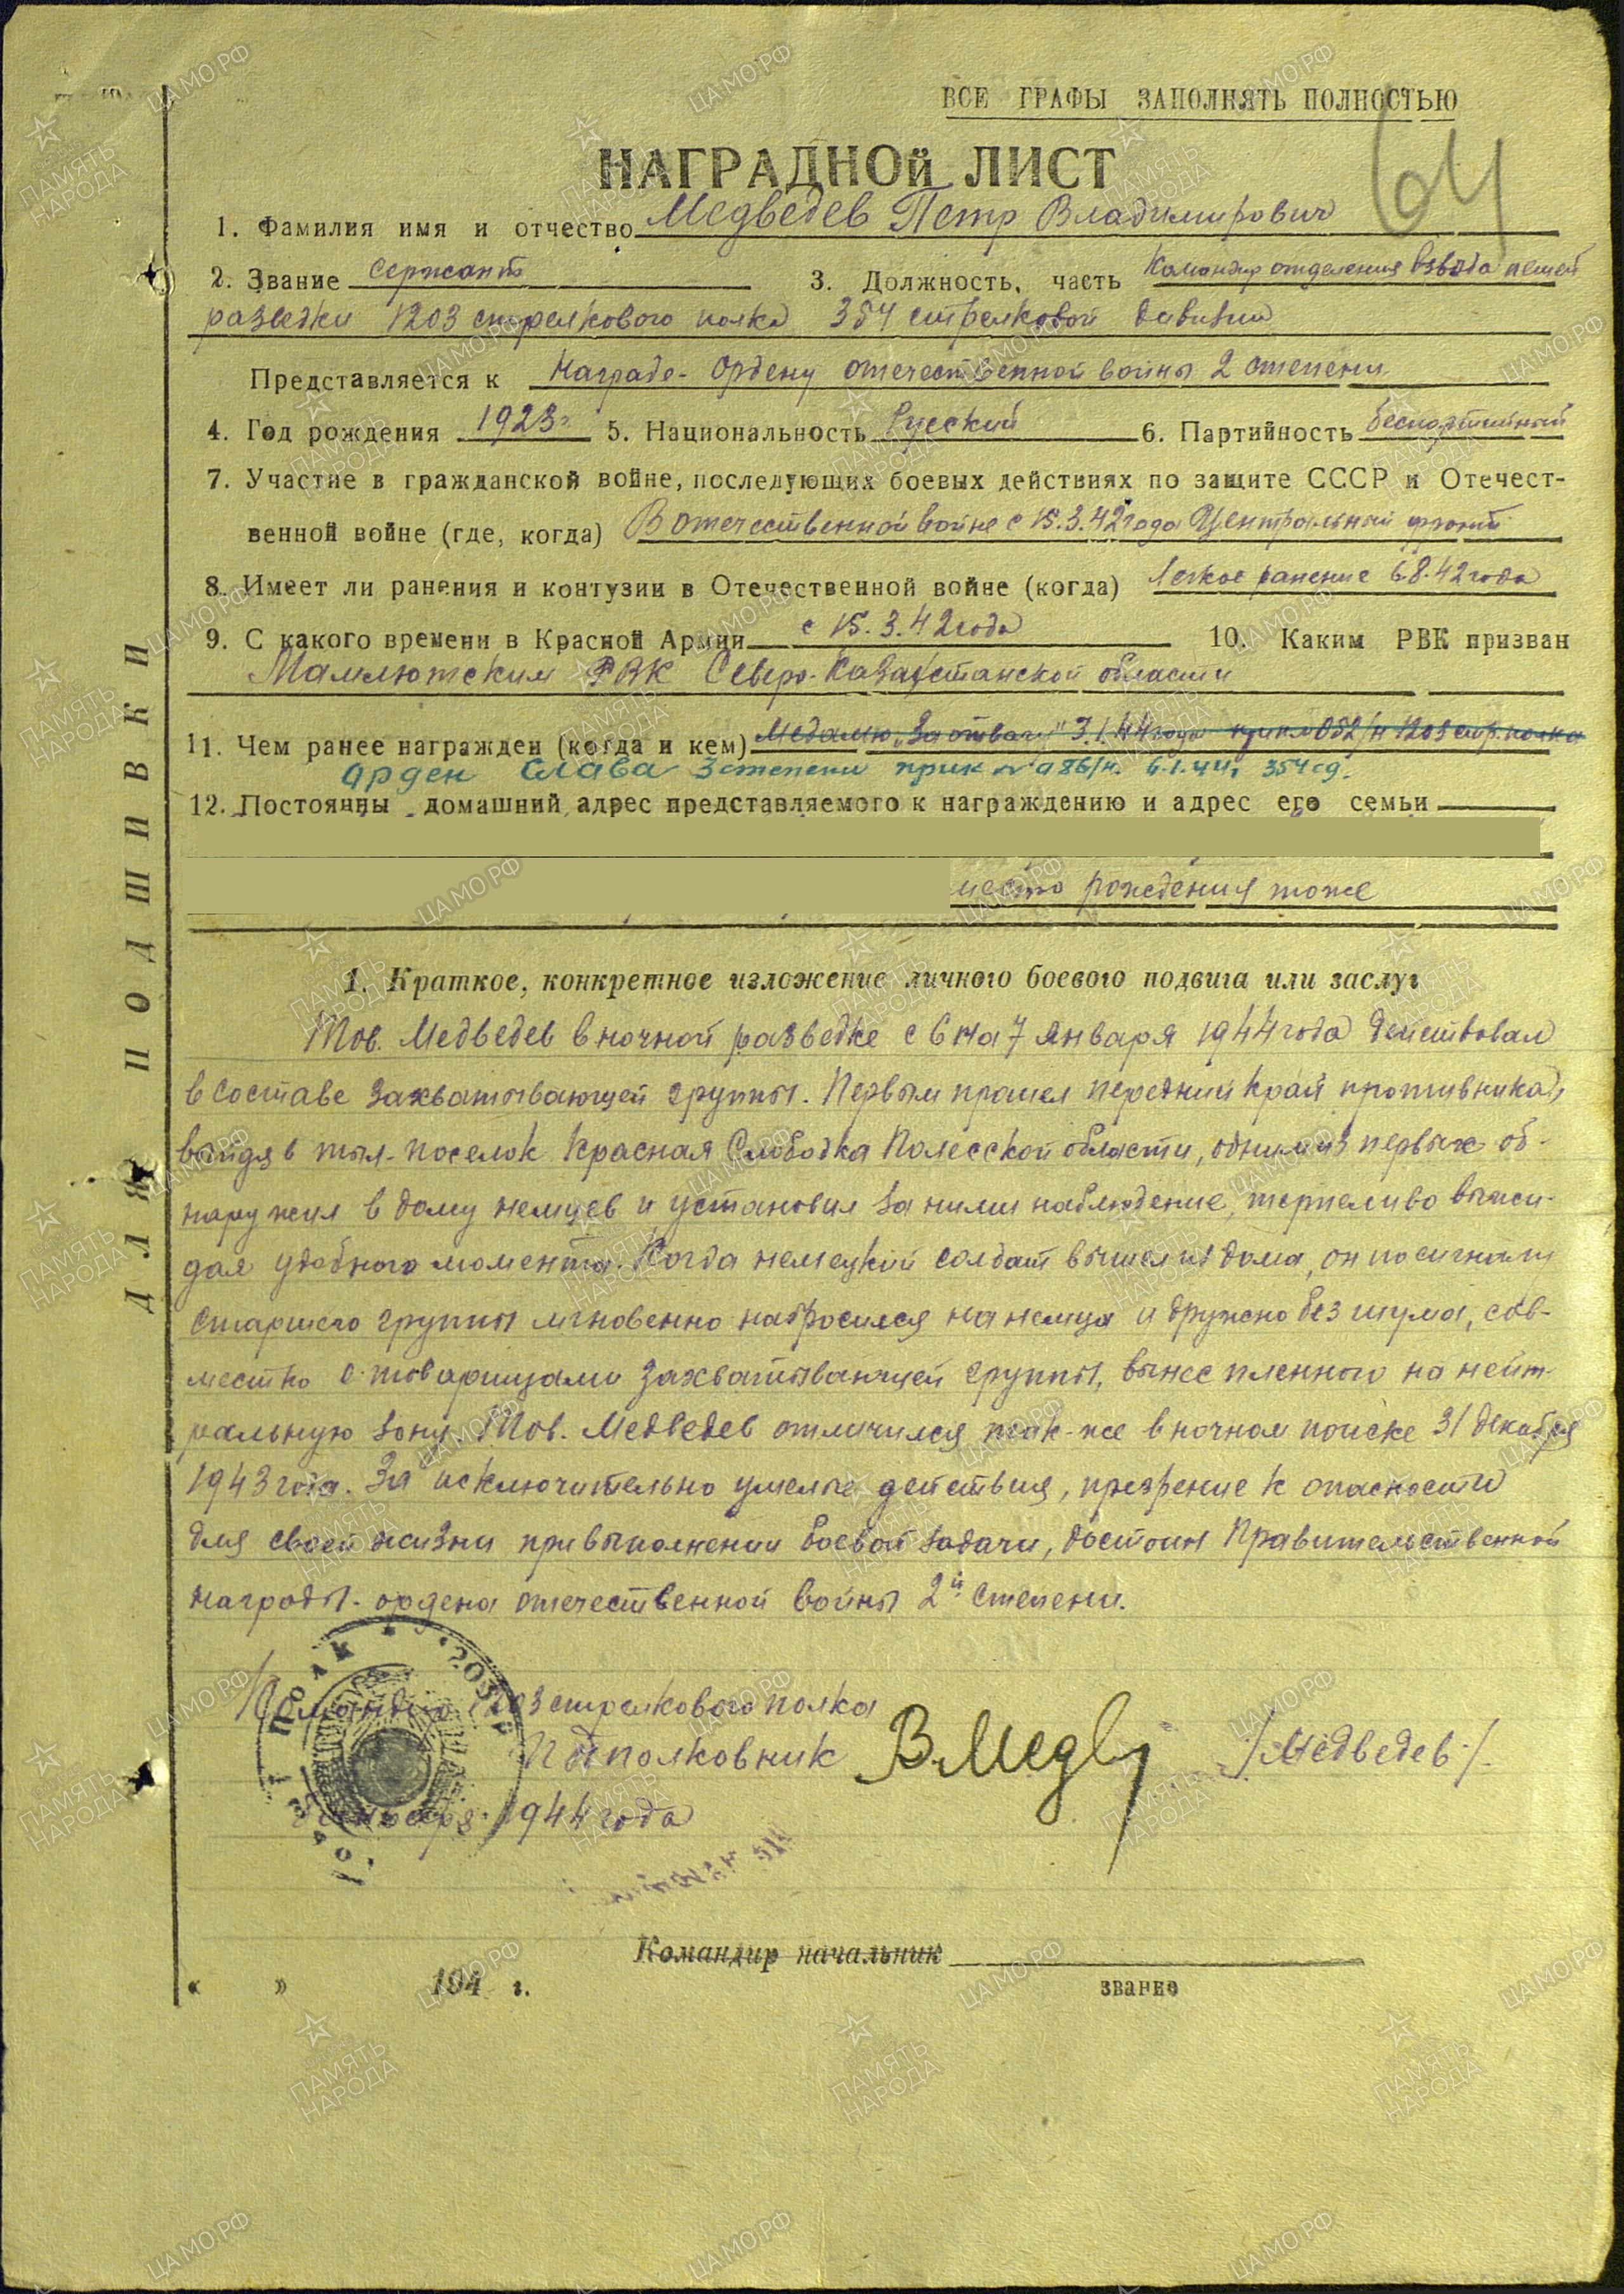 ВСЕ ГРАФЫ ЗАПОЛНЯТЬ ПОЛНОСТЬЮ
64
НАГРАДНОЙ ЛИСТ
1. Фамилия имя и отчество Медведев Петр Владимирович
2. Звание Сержант 3. Должность, часть Командир отделения взвода пешей
разведки 1203 стрелкового полка 354 стрелковой дивизии
Представляется к Награде - Ордену отечественной войны 2 степени
4. Год рождения 1923 г. 5. Национальность Русский 6. Партийность беспартийный
7. Участие в гражданской войне, последующих боевых действиях по защите СССР и Отечест-
венной войне (где, когда) В отечественной войне с 15.3.42 года Центральный фронт
8. Имеет ли ранения и контузии в Отечественной войне (когда) Легкое ранение 6.8.42 года
9. С какого времени в Красной Армии с 15.3.42 года 10. Каким РВК призван
Мамлютским РВК Северо-Казахстанской области
11. Чем ранее награжден (когда и кем) Медалью "За отвагу" 3.1.44 года 1203 стр. полка
Орден Слава 3 степени 6.1.44г 354 сд.
12. Постоянны домашний адрес представляемого к награждению и адрес его семьи
место рождения тоже
1. Краткое, конкретное изложение личного боевого подвига или заслуг
Тов. Медведев в ночной разведке с 6 на 7 января 1944 года действовал
в составе захватывающей группы. Первым прошел передний край противника,
войдя в тыл - поселок Красная Слободка Полесской области, одним из первых об-
наружил в дому немцев и установил за ними наблюдение, терпеливо выжи-
дая удобного момента. Когда немецкий солдат вышел из дома, он по сигналу
старшего группы мгновенно набросился на немца и дружно без шума, сов-
местно с товарищами захватывающей группы, вынес пленного на нейт-
ральную зону. Тов. Медведев отличился так-же в ночном поиске 31 декабря
1943 года. За исключительно умелые действия, презрение к опасности
для своей жизни при выполнении боевой задачи, достоин Правительственной
награды - ордена отечественной войны 2й степени.
Командир 1203 стрелкового полка
Подполковник В.Медв /Медведев/.
января 1944 года
Командир начальник
« » 194 г. звание
ДЛЯ ПОДШИВКИ
ПАМЯТЬ НАРОДА
ЦАМО.РФ